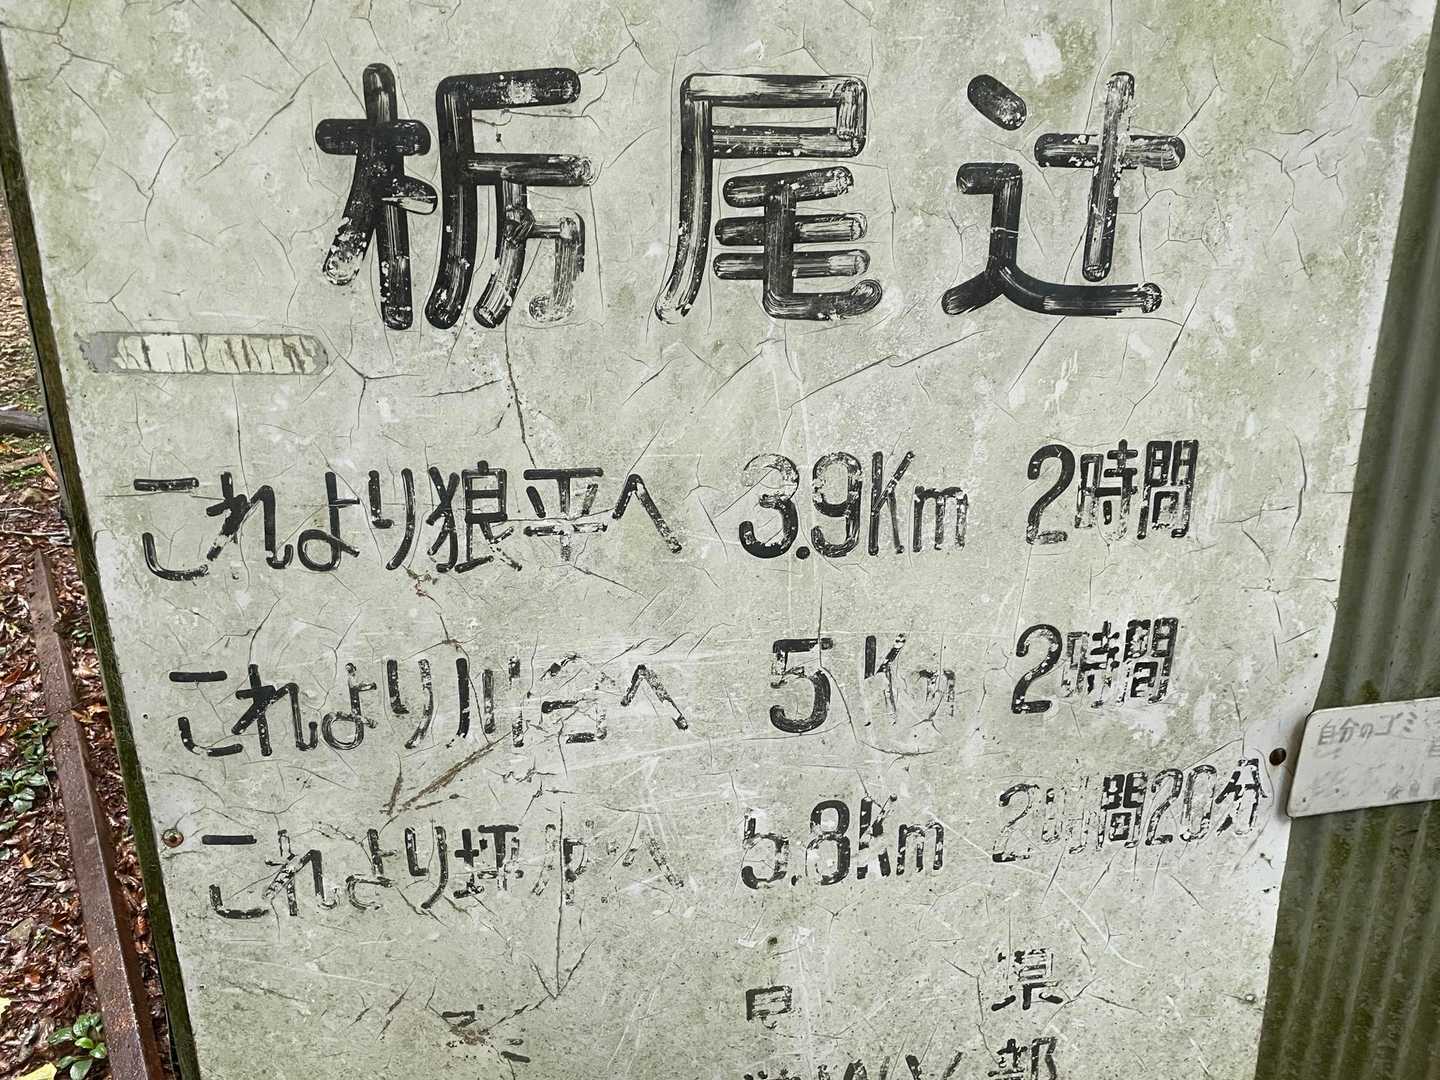 栃尾辻
これより狼平へ 3.9Km 2時間
これより川合へ 5Km 2時間
これより坪内へ 5.8Km 2時間20分
県
部
自分のゴミ